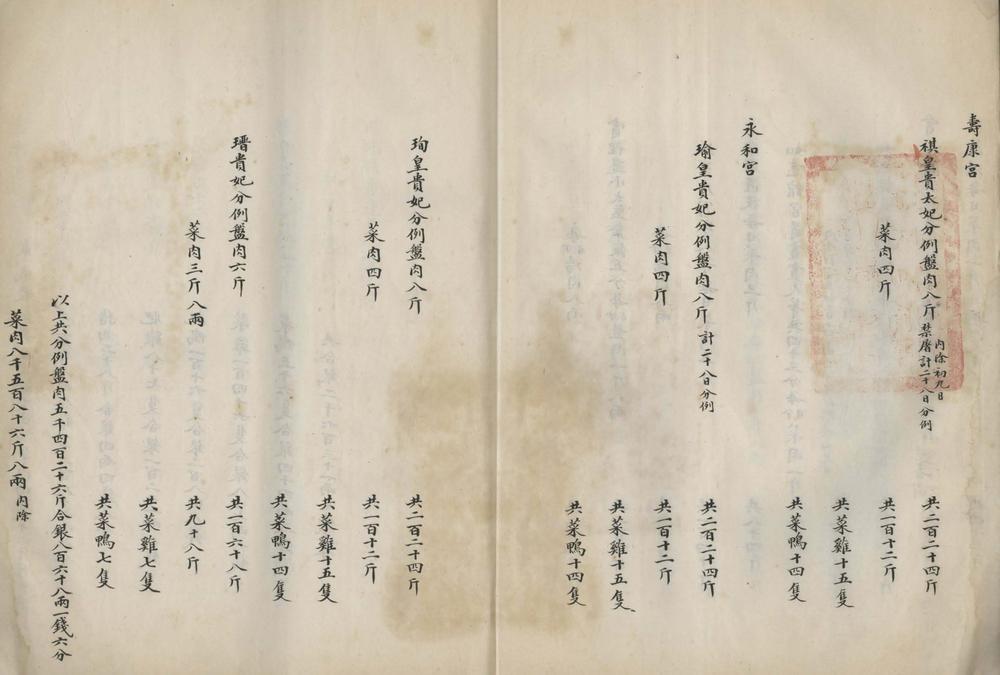 壽康宮
祺皇貴太妃分例盤肉八斤 內除初九日禁屠計二十八日分例
共二百二十四斤
菜肉四斤
共一百十二斤
共菜雞十五隻
共菜鴨十四隻
永和宮
瑜皇貴妃分例盤肉八斤 計二十八日分例
共二百二十四斤
菜肉四斤
共一百十二斤
共菜雞十五隻
共菜鴨十四隻
珣皇貴妃分例盤肉八斤
共二百二十四斤
菜肉四斤
共一百十二斤
共菜雞十五隻
共菜鴨十四隻
瑨貴妃分例盤肉六斤
共一百六十八斤
菜肉三斤八兩
共九十八斤
共菜雞七隻
共菜鴨七隻
以上共分例盤肉五千四百二十六斤合銀八百六十八兩一錢六分
菜肉八千五百八十六斤八兩 內除